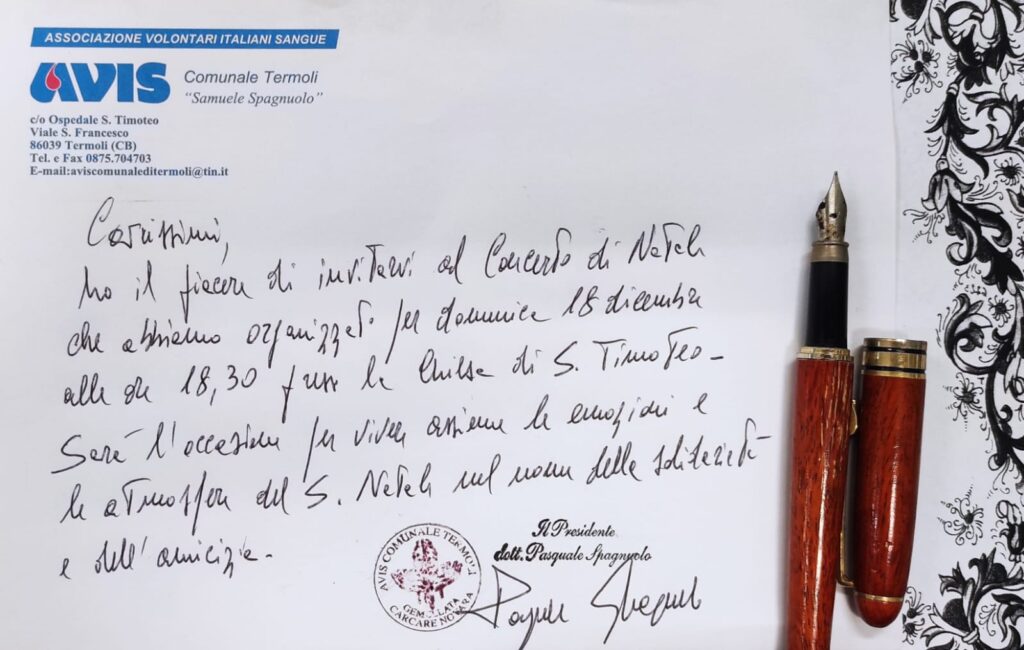 ASSOCIAZIONE VOLONTARI ITALIANI SANGUE
AVIS
Comunale Termoli
"Samuele Spagnuolo"
c/o Ospedale S. Timoteo
Viale S. Francesco
86039 Termoli (CB)
Tel. e Fax 0875.704703
E-mail:aviscomunaleditermoli@tin.it
Carissimi,
ho il piacere di invitarvi al Concerto di Natale
che abbiamo organizzato per domenica 18 dicembre
alle ore 18,30 presso la Chiesa di S. Timoteo-
Sarà l'occasione per vivere assieme le emozioni e
le atmosfere del S. Natale nel nome della solidarietà
e dell'amicizia-
Il Presidente
dott. Pasquale Spagnuolo
AVIS COMUNALE TERMOLI
GEMELLATA
CARCARE NOVARA
Pasquale Spagnuolo